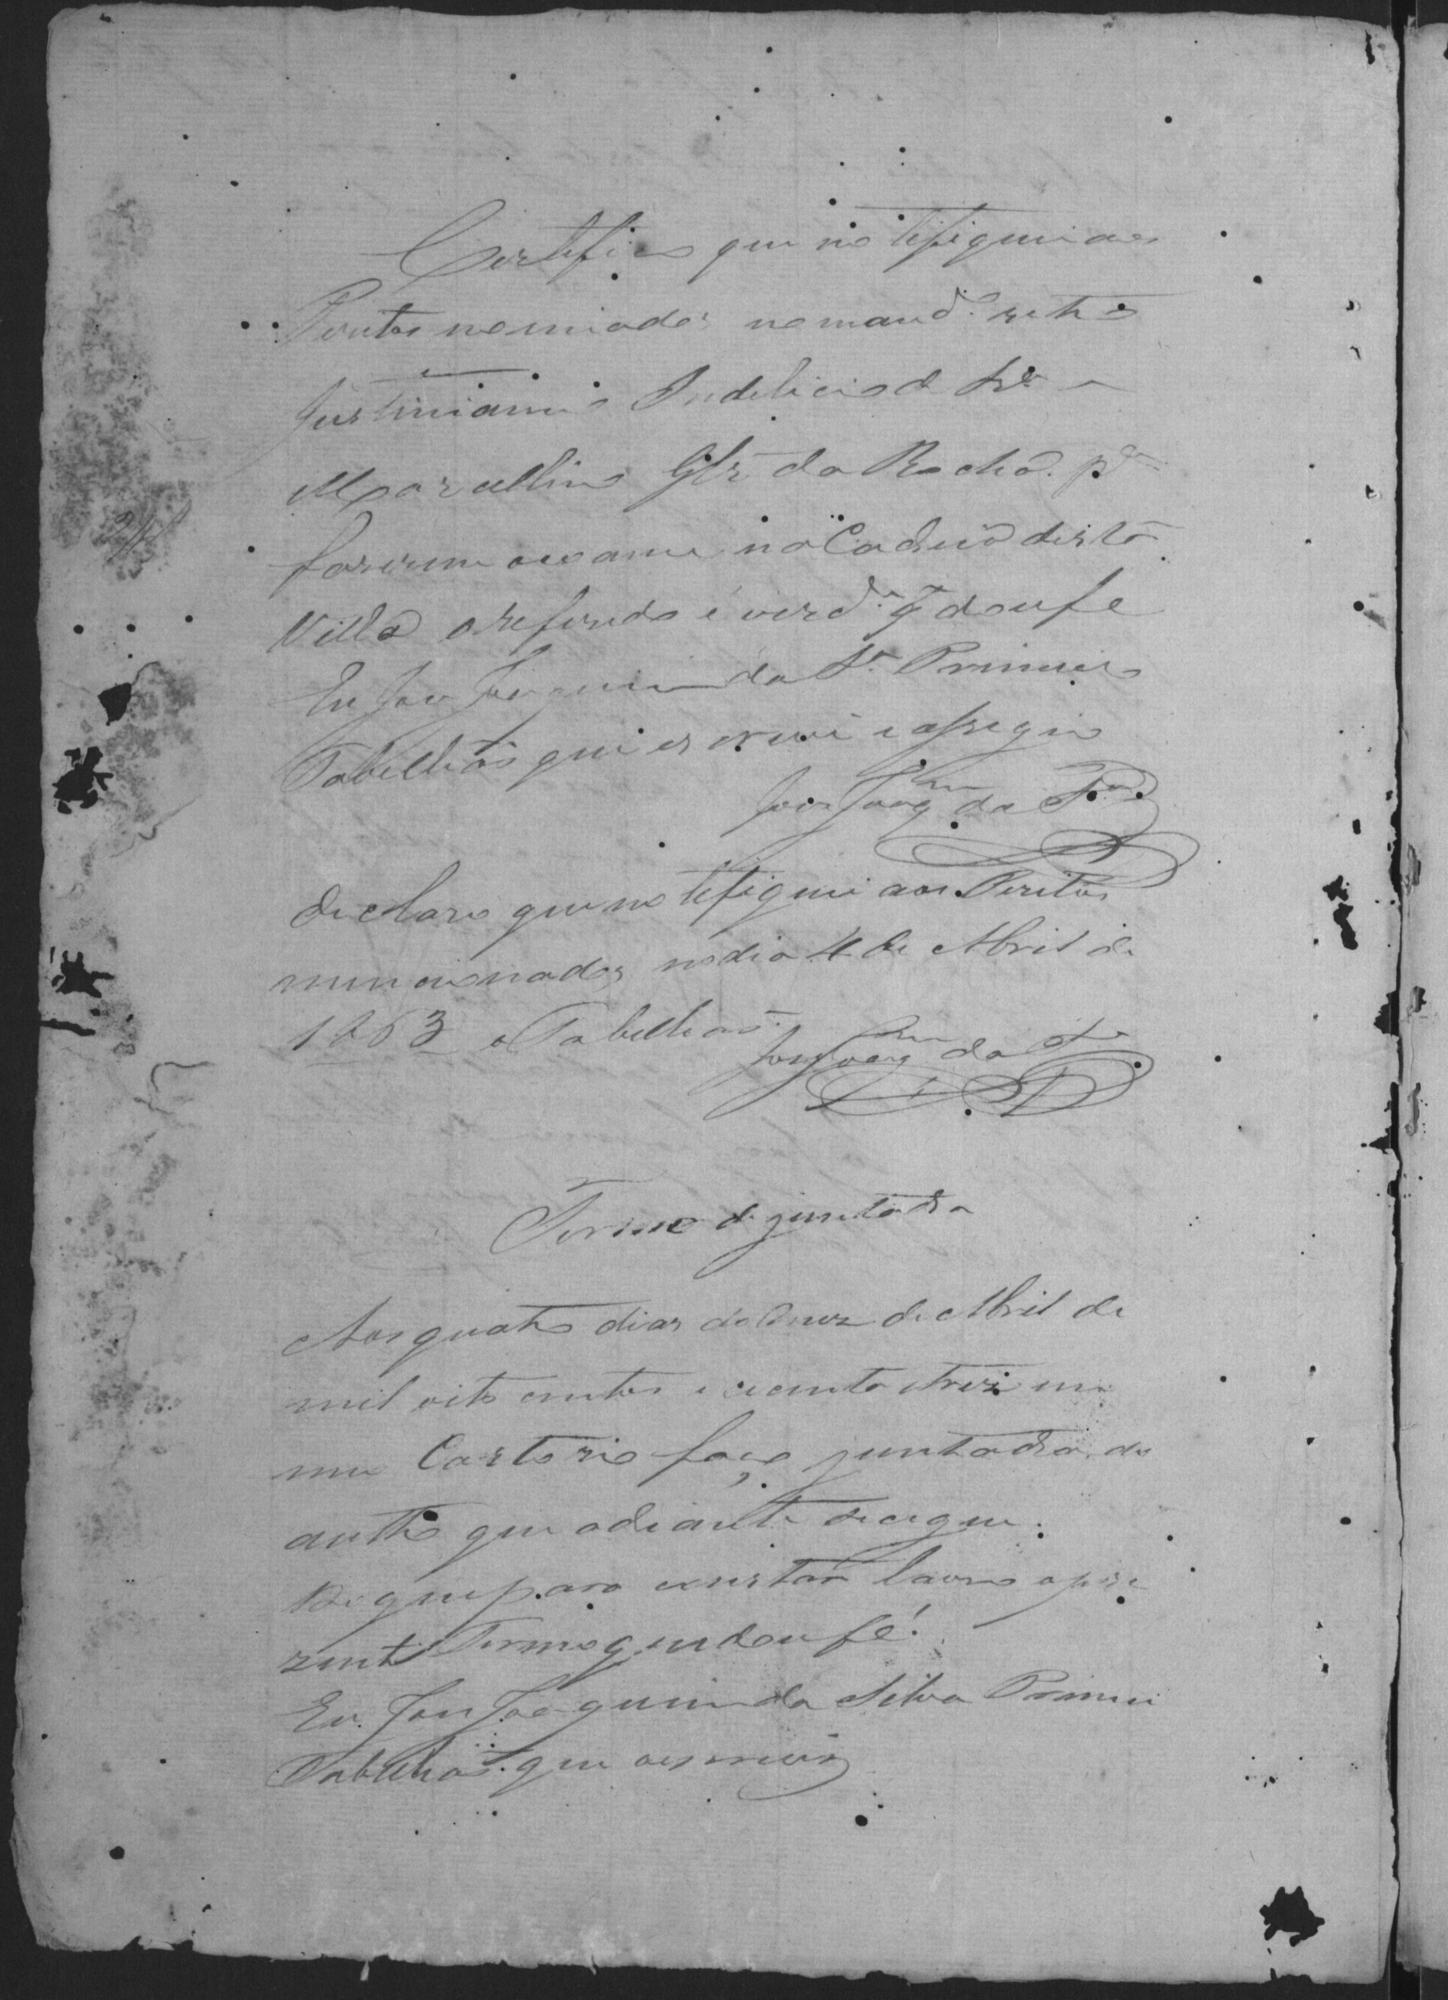 Certifico que notefiquei aos
Peritos nomiados no mand.o retro
Justiniano Indelicio d
Marcellino Glz da Rocha. p.a
fazerem oexame na Cadeia desta
Villa oreferido é verd.e q̃ doufe
Eu Joze Joaquim da S.a Primeiro
Tabelliaõ que escrevi e assigno
Joze Joaq.m da S.a
declaro que notefiquei aos Peritos
mencionados nodia 4 de Abril de
1863 o Tabelliaõ. Joze Joaq.m da S.a
Termo de juntada
Aos quatro dias do mez de Abril de
mil oito centos e cecenta e trez em
meu Cartorio faço juntada do
auto que adiante secegue.
De que para constar lavro opre
zente Termo que doufé.
Eu Joze Joaquim da Silva Primei
Tabelliaõ que oescrevi